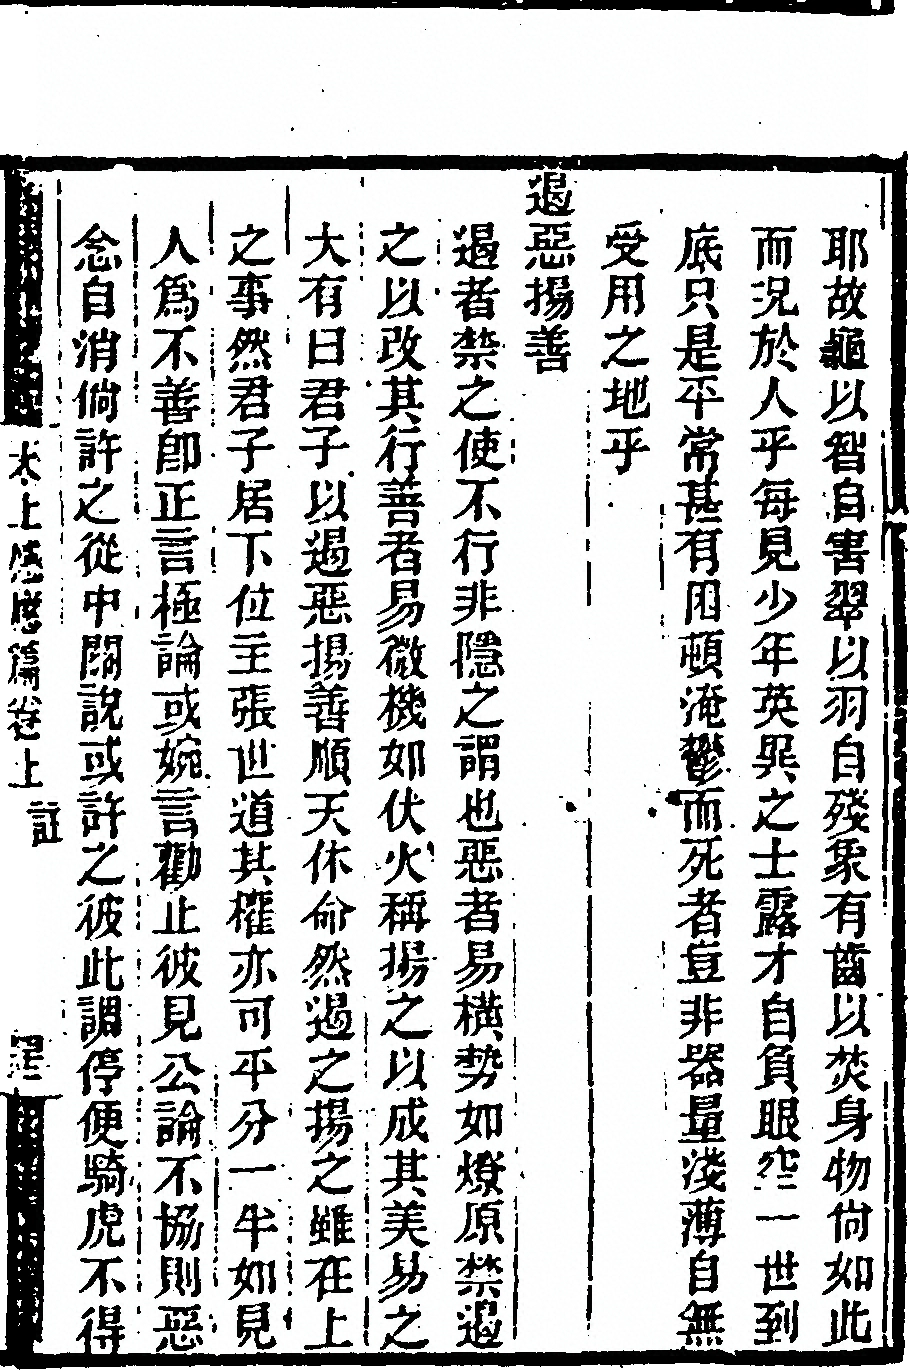 耶故龜以智自害翠以羽自殘象有齒以焚身物尙如此
而況於人乎每見少年英異之士露才自負眼空一世到
底只是平常甚有困頓淹鬱而死者豈非器量淺薄自無
受用之地乎
遏惡揚善
遏者禁之使不行非隱之謂也惡者易橫勢如燎原禁遏
之以改其行善者易微機如伏火稱揚之以成其美易之
大有曰君子以遏惡揚善順天休命然遏之揚之雖在上
之事然君子居下位主張世道其權亦可平分一半如見
人爲不善卽正言極論或婉言勸止彼見公論不協則惡
念自消倘許之從中關說或許之彼此調停便騎虎不得
太上感應篇卷上 註